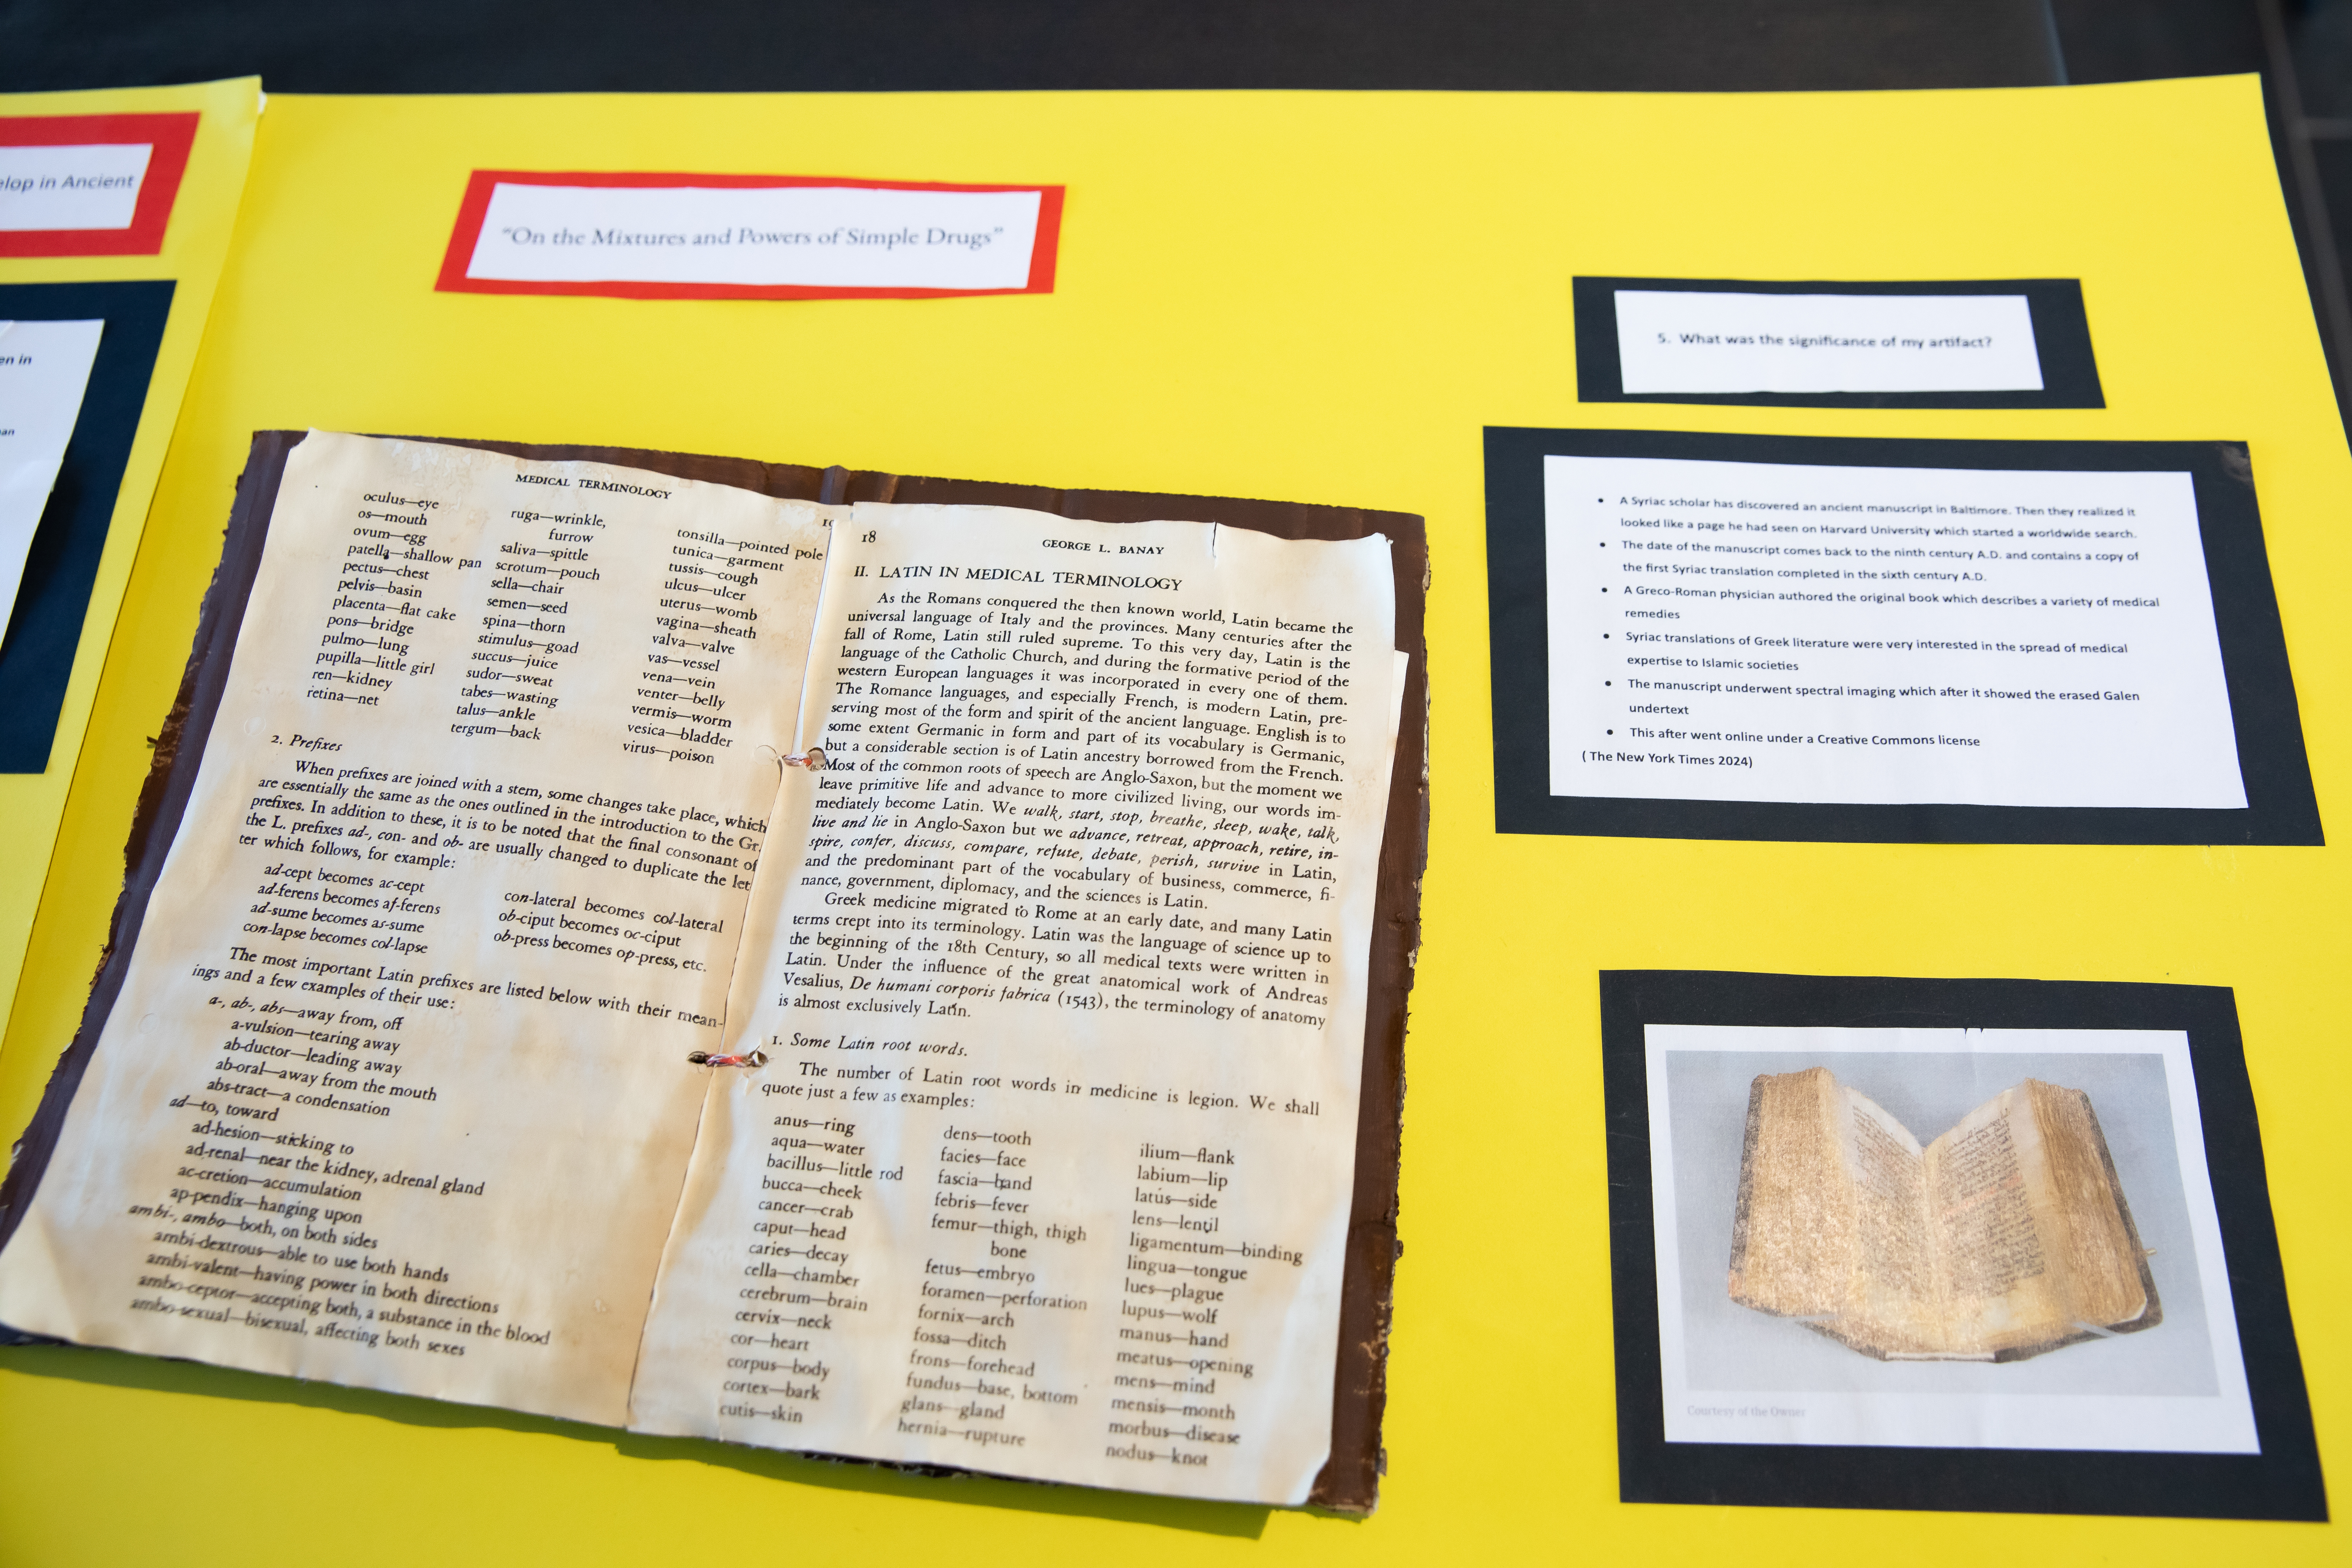 elop in Ancient
en in
an
"On the Mixtures and Powers of Simple Drugs"
MEDICAL TERMINOLOGY
19
oculus—eye
os—mouth
ovum—egg
patella—shallow pan
pectus—chest
pelvis—basin
placenta—flat cake
pons—bridge
pulmo—lung
pupilla—little girl
ren—kidney
retina—net
ruga—wrinkle,
furrow
saliva—spittle
scrotum—pouch
sella—chair
semen—seed
spina—thorn
stimulus—goad
succus—juice
sudor—sweat
tabes—wasting
talus—ankle
tergum—back
tonsilla—pointed pole
tunica—garment
tussis—cough
ulcus—ulcer
uterus—womb
vagina—sheath
valva—valve
vas—vessel
vena—vein
venter—belly
vermis—worm
vesica—bladder
virus—poison
2. Prefixes
When prefixes are joined with a stem, some changes take place, which
are essentially the same as the ones outlined in the introduction to the Gr.
prefixes. In addition to these, it is to be noted that the final consonant of
the L. prefixes ad-, con- and ob- are usually changed to duplicate the let
ter which follows, for example:
ad-cept becomes ac-cept
ad-ferens becomes af-ferens
ad-sume becomes as-sume
con-lapse becomes col-lapse
con-lateral becomes col-lateral
ob-ciput becomes oc-ciput
ob-press becomes op-press, etc.
The most important Latin prefixes are listed below with their mean-
ings and a few examples of their use:
a-, ab-, abs—away from, off
a-vulsion—tearing away
ab-ductor—leading away
ab-oral—away from the mouth
abs-tract—a condensation
ad—to, toward
ad-hesion—sticking to
ad-renal—near the kidney, adrenal gland
ac-cretion—accumulation
ap-pendix—hanging upon
ambi-, ambo—both, on both sides
ambi-dextrous—able to use both hands
ambi-valent—having power in both directions
ambo-ceptor—accepting both, a substance in the blood
ambo-sexual—bisexual, affecting both sexes
18
GEORGE L. BANAY
II. LATIN IN MEDICAL TERMINOLOGY
As the Romans conquered the then known world, Latin became the
universal language of Italy and the provinces. Many centuries after the
fall of Rome, Latin still ruled supreme. To this very day, Latin is the
language of the Catholic Church, and during the formative period of the
western European languages it was incorporated in every one of them.
The Romance languages, and especially French, is modern Latin, pre-
serving most of the form and spirit of the ancient language. English is to
some extent Germanic in form and part of its vocabulary is Germanic,
but a considerable section is of Latin ancestry borrowed from the French.
Most of the common roots of speech are Anglo-Saxon, but the moment we
leave primitive life and advance to more civilized living, our words im-
mediately become Latin. We walk, start, stop, breathe, sleep, wake, talk,
live and lie in Anglo-Saxon but we advance, retreat, approach, retire, in-
spire, confer, discuss, compare, refute, debate, perish, survive in Latin,
and the predominant part of the vocabulary of business, commerce, fi-
nance, government, diplomacy, and the sciences is Latin.
Greek medicine migrated to Rome at an early date, and many Latin
terms crept into its terminology. Latin was the language of science up to
the beginning of the 18th Century, so all medical texts were written in
Latin. Under the influence of the great anatomical work of Andreas
Vesalius, De humani corporis fabrica (1543), the terminology of anatomy
is almost exclusively Latin.
1. Some Latin root words.
The number of Latin root words in medicine is legion. We shall
quote just a few as examples:
anus—ring
aqua—water
bacillus—little rod
bucca—cheek
cancer—crab
caput—head
caries—decay
cella—chamber
cerebrum—brain
cervix—neck
cor—heart
corpus—body
cortex—bark
cutis—skin
dens—tooth
facies—face
fascia—band
febris—fever
femur—thigh, thigh
bone
fetus—embryo
foramen—perforation
fornix—arch
fossa—ditch
frons—forehead
fundus—base, bottom
glans—gland
hernia—rupture
ilium—flank
labium—lip
latus—side
lens—lentil
ligamentum—binding
lingua—tongue
lues—plague
lupus—wolf
manus—hand
meatus—opening
mens—mind
mensis—month
morbus—disease
nodus—knot
5. What was the significance of my artifact?
• A Syriac scholar has discovered an ancient manuscript in Baltimore. Then they realized it
looked like a page he had seen on Harvard University which started a worldwide search.
• The date of the manuscript comes back to the ninth century A.D. and contains a copy of
the first Syriac translation completed in the sixth century A.D.
• A Greco-Roman physician authored the original book which describes a variety of medical
remedies
• Syriac translations of Greek literature were very interested in the spread of medical
expertise to Islamic societies
• The manuscript underwent spectral imaging which after it showed the erased Galen
undertext
• This after went online under a Creative Commons license
( The New York Times 2024)
Courtesy of the Owner